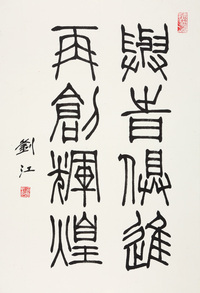 與旹俱進
再創輝煌
劉江